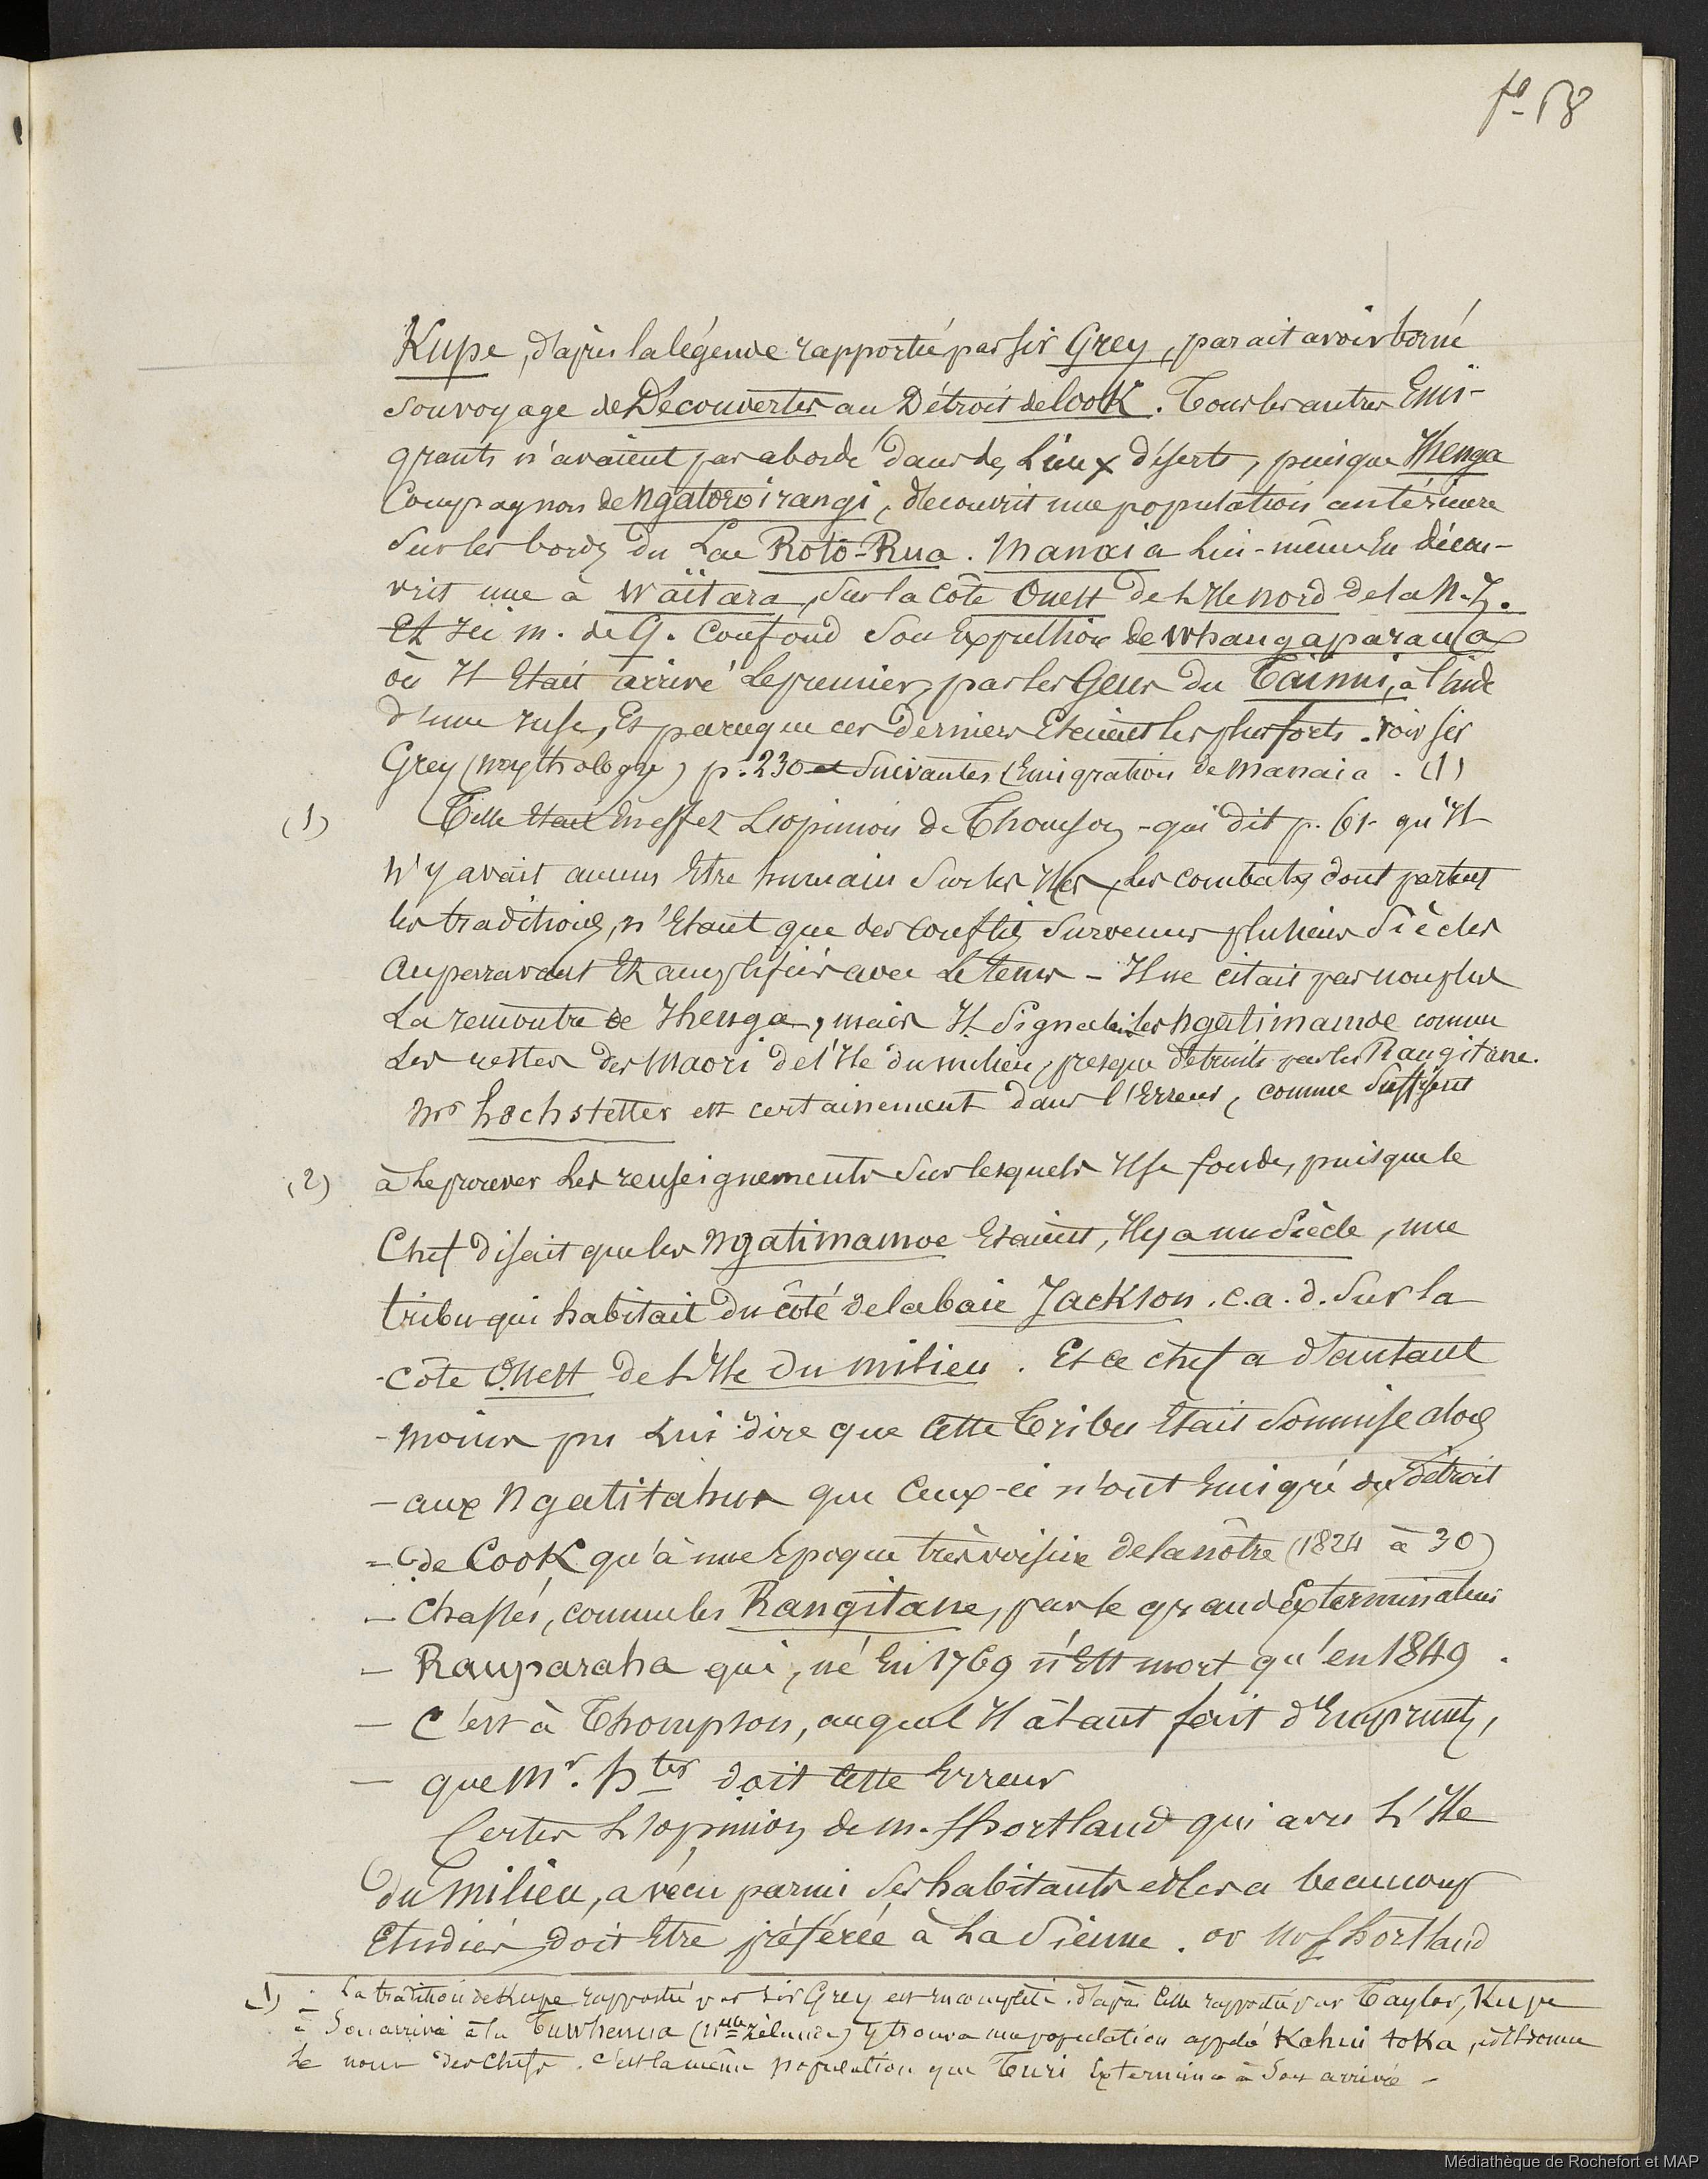 fo 58
Kupe, d'après la légende rapportée par sir Grey, parait avoir borné
son voyage de Découvertes au Détroit de Cook. Tous les autres Emi-
grants n'avaient pas abordé dans des Lieux déserts, puisque Ihenga
Compagnon de Ngatoroirangi, decouvrit une population antérieure
Sur les bords du Lac Roto-Rua. Manaia Lui-même En décou-
vrit une à Waïtara, Sur la Côte Ouest de L'Ile nord de la N. Z.
Et Ici m. de Q. Confond Son Expulsion de Whangaparaoa
où Il Etait arrivé Le premier, par les Gens du Tainui, à l'aide
d'une ruse, Et parceque ces derniers Etaient les plus forts. Voir sir
Grey (mythologie) p. 230 et Suivantes (Emigration de Manaia. (1)
(1) Telle Etait En effet L'opinion de Thomson - qui dit p. 61. qu'Il
N'y avait aucun Etre humain Sur les Iles, Les combats dont parlent
les traditions, n'Etant que des conflits Survenus plusieurs Siècles
Auparavant Et amplifiés avec Le tems - Il ne citait pas non plus
La rencontre de Ihenga, mais Il Signalait les Ngatimamoe comme
Les restes des Maori de l'Ile du milieu, presque détruits par les Rangitane.
Mr hochstetter est certainement dans l'Erreur, comme Suffisent
(2) à Le prouver Les renseignements Sur lesquels Il se fonde, puisque le
Chef disait que les Ngatimamoe Etaient, Il y a un Siècle, une
tribu qui habitait du côté de la baie Jackson. c.a.d. Sur la
- Côte Ouest de L'Ile du milieu. Et ce chef a d'autant
- moins pu Lui dire que Cette Tribu Etait Soumise alors
- aux Ngatitahu que Ceux-ci n'ont Emigré du Détroit
- de Cook qu'à une Epoque très voisine de la nôtre (1824 à 30)
- Chassés, comme les Rangitane, par le grand Exterminateur
- Rauparaha qui, né En 1769 n'Est mort qu'en 1849.
- C'est à Thompson, auquel Il a tant fait d'Emprunts,
- que Mr. hter doit Cette Erreur
Certes L'opinion de m. Shortland qui a vu L'Ile
du Milieu, a vécu parmi Ses habitants et les a beaucoup
Etudiés, doit Etre préférée à La Sienne. or Mr Shortland
(1) La tradition de Kupe rapportée par sir Grey est incomplète. d'après Celle rapportée par Taylor, Kupe
à Son arrivée à la Tuwhenua (Nlle Zélande) y trouva une population appelée Kahui toka, et Il donne
Le nom des Chefs. C'est la même population que Turi Extermina à Son arrivée -
Médiathèque de Rochefort et MAP